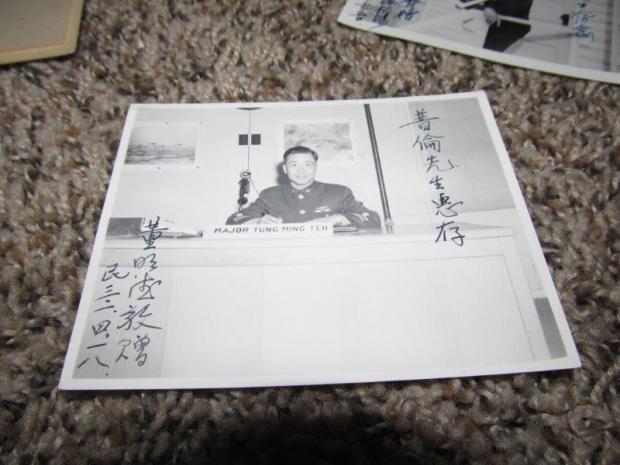 普倫先生惠存
MAJOR TUNG MING TEH
董明德敬贈
民三二.四.一八.